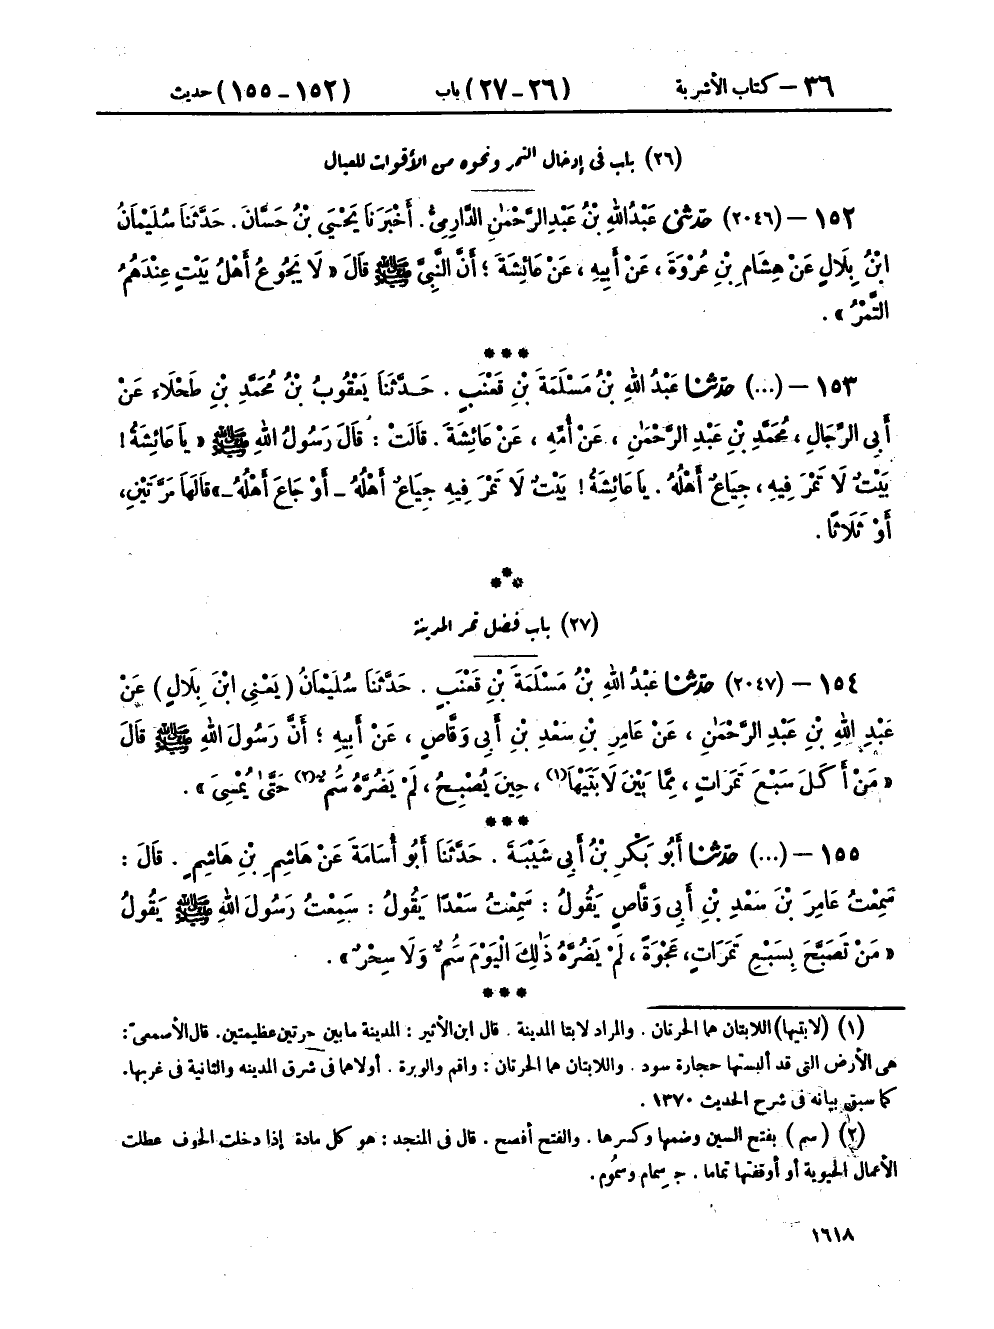 ٣٦ – كتاب الأشربة (٢٦ – ٢٧) باب (١٥٢ – ١٥٥) حديث
(٢٦) باب فى إدخال التمر ونحوه من الأقوات للعيال
١٥٢ – (٢٠٤٦) حَدَّثَنِى عَبْدُ اللهِ بْنُ عَبْدِ الرَّحْمَٰنِ الدَّارِمِىُّ . أَخْبَرَنَا يَحْيَىٰ بْنُ حَسَّانَ . حَدَّثَنَا سُلَيْمَانُ
ابْنُ بِلَالٍ عَنْ هِشَامِ بْنِ عُرْوَةَ ، عَنْ أَبِيهِ ، عَنْ عَائِشَةَ ؛ أَنَّ النَّبِىَّ ﷺ قَالَ « لَا يَجُوعُ أَهْلُ بَيْتٍ عِنْدَهُمُ
التَّمْرُ » .
***
١٥٣ – (...) حَدَّثَنَا عَبْدُ اللهِ بْنُ مَسْلَمَةَ بْنِ قَعْنَبٍ . حَدَّثَنَا يَعْقُوبُ بْنُ مُحَمَّدِ بْنِ طَحْلَاءَ عَنْ
أَبِى الرِّجَالِ ، مُحَمَّدِ بْنِ عَبْدِ الرَّحْمَٰنِ ، عَنْ أُمِّهِ ، عَنْ عَائِشَةَ . قَالَتْ : قَالَ رَسُولُ اللهِ ﷺ « يَا عَائِشَةُ !
بَيْتٌ لَا تَمْرَ فِيهِ ، جِيَاعٌ أَهْلُهُ . يَا عَائِشَةُ ! بَيْتٌ لَا تَمْرَ فِيهِ جِيَاعٌ أَهْلُهُ – أَوْ جَاعَ أَهْلُهُ –» قَالَهَا مَرَّتَيْنِ،
أَوْ ثَلَاثًا .
***
(٢٧) باب فضل تمر المدينة
١٥٤ – (٢٠٤٧) حَدَّثَنَا عَبْدُ اللهِ بْنُ مَسْلَمَةَ بْنِ قَعْنَبٍ . حَدَّثَنَا سُلَيْمَانُ (يَعْنِى ابْنَ بِلَالٍ) عَنْ
عَبْدِ اللهِ بْنِ عَبْدِ الرَّحْمَٰنِ ، عَنْ عَامِرِ بْنِ سَعْدِ بْنِ أَبِى وَقَّاصٍ ، عَنْ أَبِيهِ ؛ أَنَّ رَسُولَ اللهِ ﷺ قَالَ
« مَنْ أَكَلَ سَبْعَ تَمَرَاتٍ ، مِمَّا بَيْنَ لَابَتَيْهَا(١) ، حِينَ يُصْبِحُ ، لَمْ يَضُرَّهُ سُمٌّ(٢) حَتَّىٰ يُمْسِىَ » .
***
١٥٥ – (...) حَدَّثَنَا أَبُو بَكْرِ بْنُ أَبِى شَيْبَةَ . حَدَّثَنَا أَبُو أُسَامَةَ عَنْ هَاشِمِ بْنِ هَاشِمٍ . قَالَ :
سَمِعْتُ عَامِرَ بْنَ سَعْدِ بْنِ أَبِى وَقَّاصٍ يَقُولُ : سَمِعْتُ سَعْدًا يَقُولُ : سَمِعْتُ رَسُولَ اللهِ ﷺ يَقُولُ
« مَنْ تَصَبَّحَ بِسَبْعِ تَمَرَاتٍ، عَجْوَةً ، لَمْ يَضُرَّهُ ذَٰلِكَ الْيَوْمَ سُمٌّ وَلَا سِحْرٌ » .
***
(١) (لابتيها) اللابتان هما الحرتان . والمراد لابتا المدينة . قال ابن الأثير : المدينة ما بين حرتين عظيمتين. قال الأصمعىّ:
هى الأرض التى قد ألبستها حجارة سود . واللابتان هما الحرتان : واقم والوبرة . أولاهما فى شرق المدينه والثانية فى غربها.
كما سبق بيانه فى شرح الحديث ١٣٧٠ .
(٢) (سم) بفتح السين وضمها وكسرها . والفتح أفصح . قال فى المنجد : هو كل مادة إذا دخلت الجوف عطلت
الأعمال الحيوية أو أوقفتها تماما . ج سِمام وسُموم.
١٦١٨